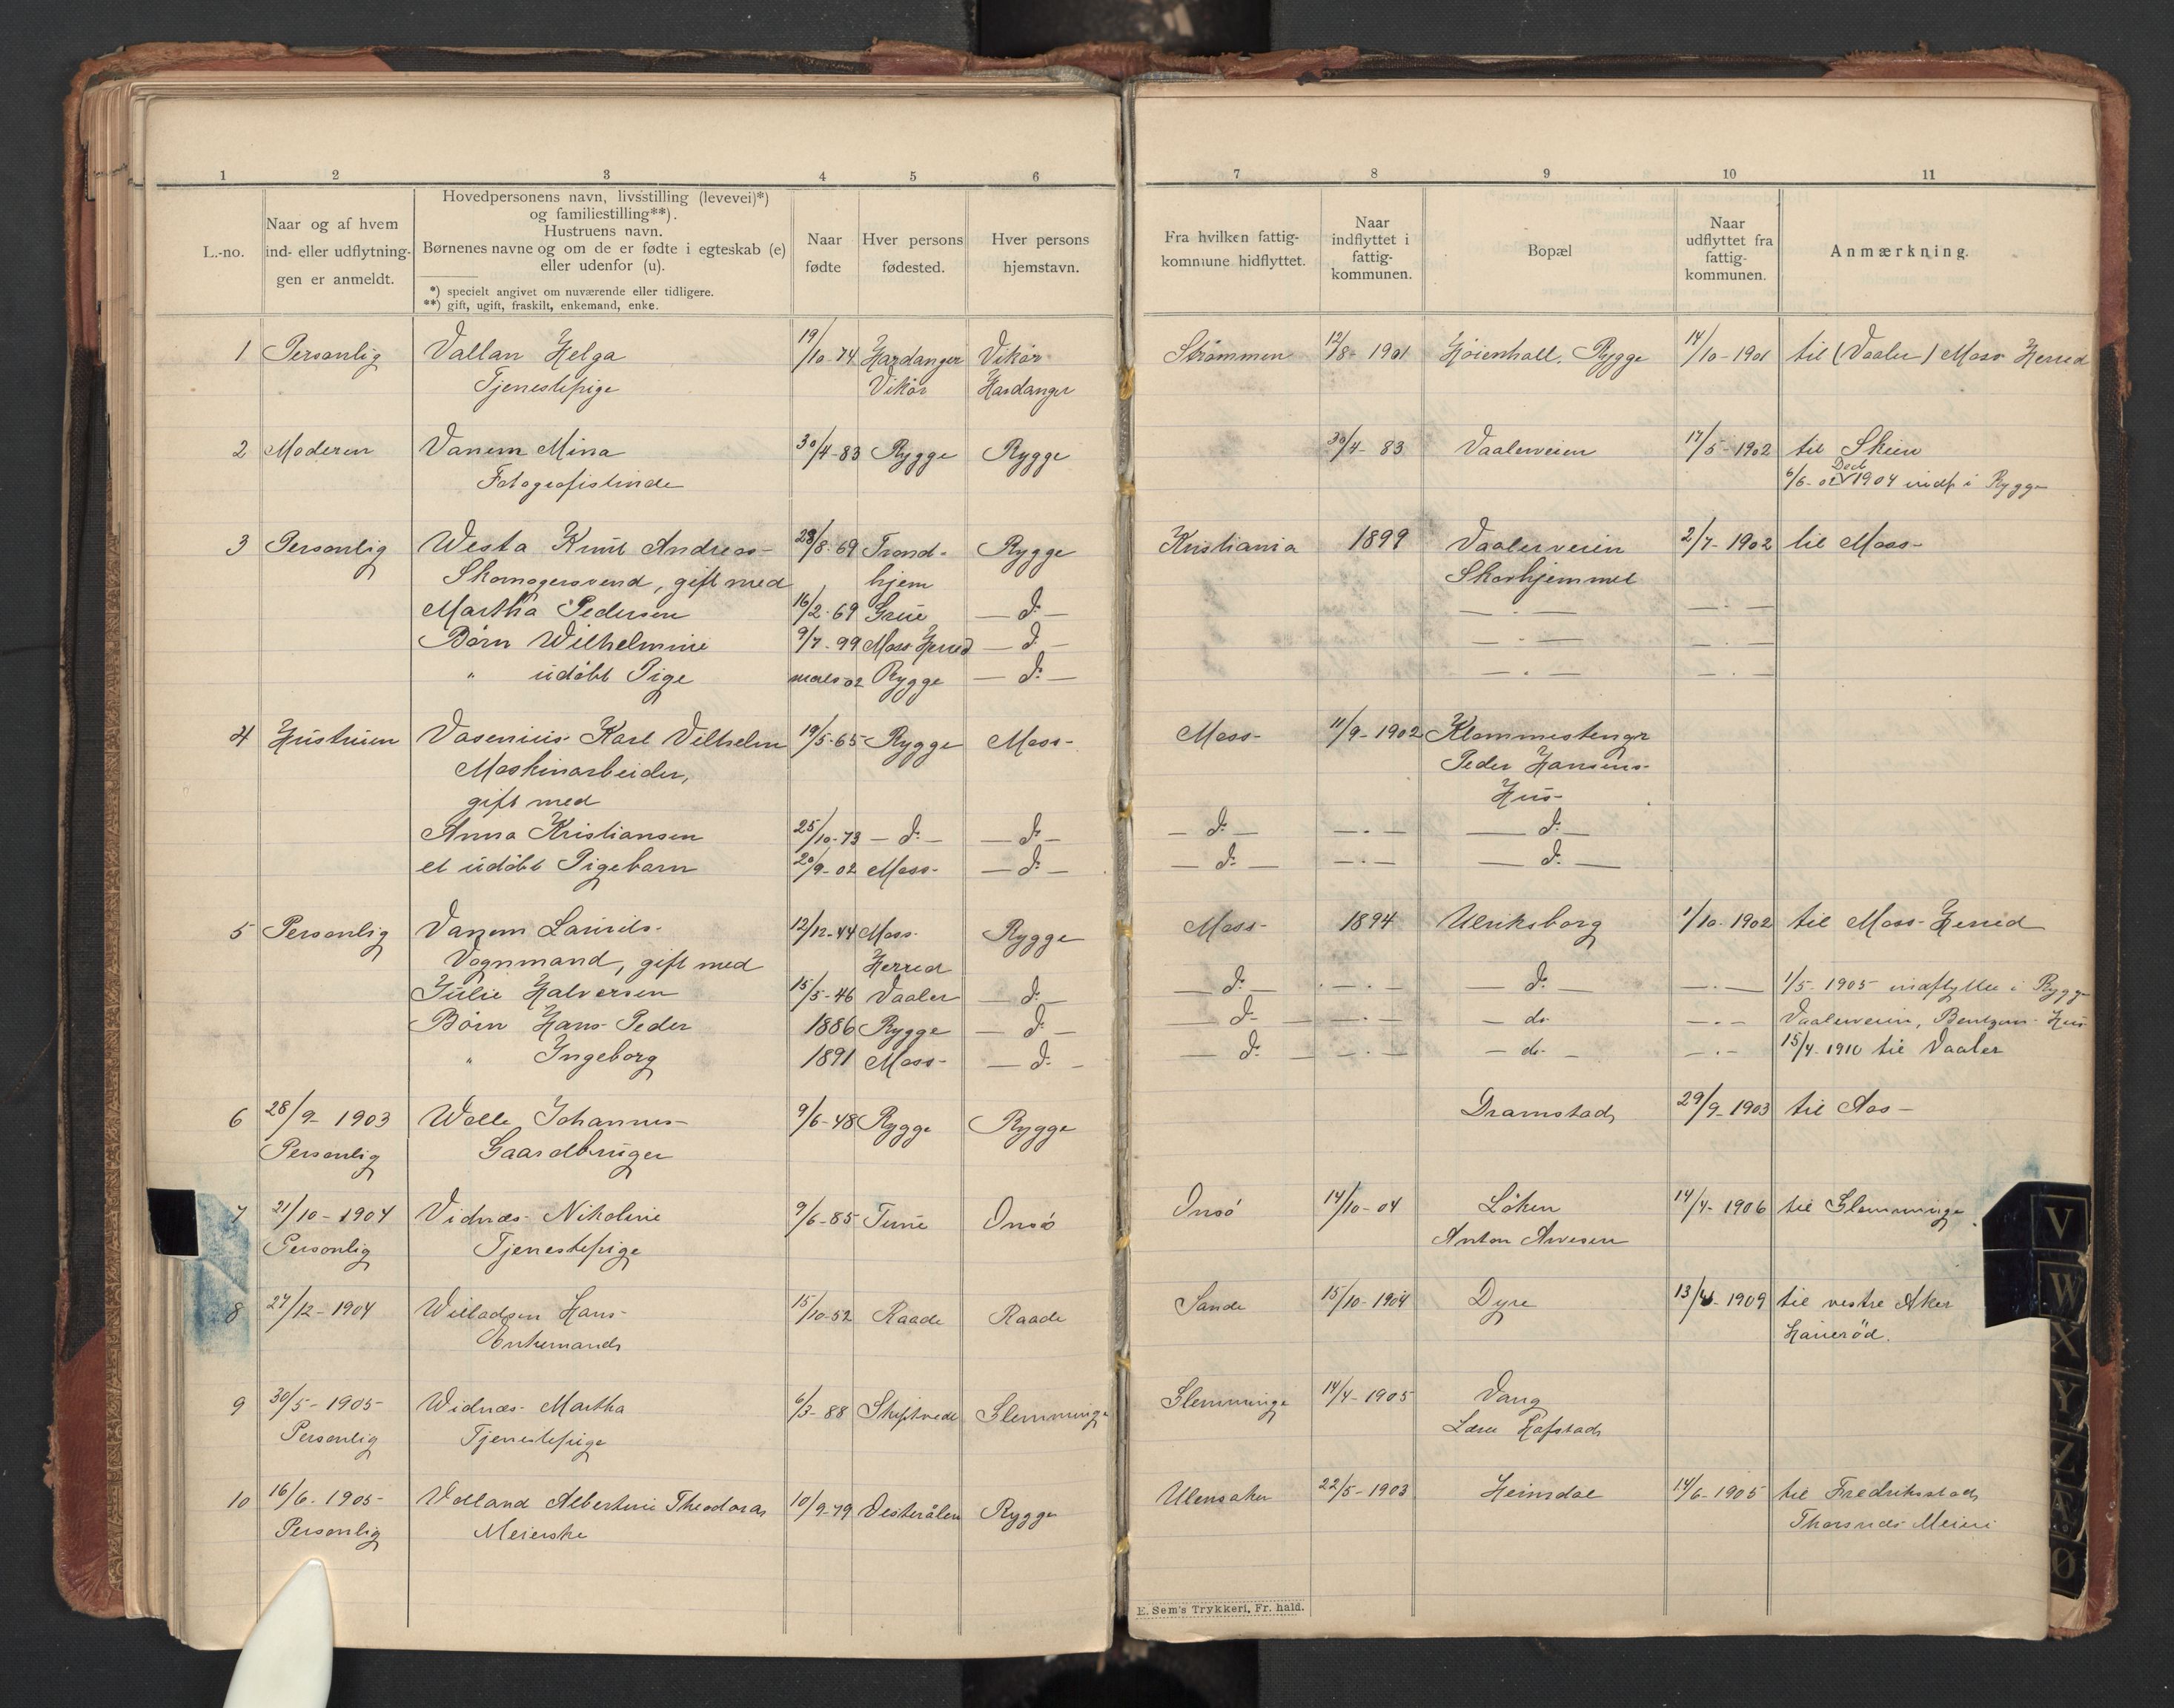 1 2 3 4 5 6 7 8 9 10 11
L.-no.
Naar og af hvem
ind- eller udflytnin-
gen er anmeldt.
Hovedpersonens navn, livsstilling (levevei)*)
og familiestilling**).
Hustruens navn.
Børnenes navne og om de er fødte i egteskab (e)
eller udenfor (u).
*) specielt angivet om nuværende eller tidligere.
**) gift, ugift, fraskilt, enkemand, enke.
Naar
fødte
Hver persons
fødested.
Hver persons
hjemstavn.
Fra hvilken fattig-
kommune hidflyttet.
Naar
indflyttet i
fattig-
kommunen.
Bopæl
Naar
udflyttet fra
fattig-
kommunen.
Anmærkning.
1 Personlig Vallan Helga 19/10-74 Hardanger Vikör Strömmen 12/8-1901 Höienhall. Rygge 14/10-1901 til (Vaaler) Moss Herred
Tjenestepige Vikör Hardanger
2 Moderen Vanem Mina 30/4-83 Rygge Rygge 30/4-83 Vaalerveien 17/5-1902 til Skien
Fotografistinde 6/6- 1904 indf i Rygge
3 Personlig Westa Knut Andreas 28/8-69 Trond- Rygge Kristiania 1899 Vaalerveien 2/7-1902 til Moss
Skomagersvend, gift med hjem Skarhjemmet
Martha Pedersen 16/2-69 Grue — d: — — . — — . —
Börn Wilhelmine 9/7-99 Moss Herred — d: — — . — — . —
" udöbt Pige marts 02 Rygge — d: — — . — — . —
4 Hustruen Vasenius Karl Vilhelm 19/5-65 Rygge Moss Moss 11/9-1902 Klommestenger
Maskinarbeider, Peder Hansens
gift med Hus
Anna Kristiansen 25/10-73 — d: — — d: — — d: — — . — — d: —
et udöbt Pigebarn 20/9-02 Moss — d: — — d: — — . — — d: —
5 Personlig Vanem Laurits 12/12-44 Moss Rygge Moss 1894 Ulriksborg 1/10-1902 til Moss Herred
Vognmand, gift med Herred
Julie Halversen 15/5-46 Vaaler — d: — — d: — — . — — d: — — . — 1/5-1905 indflyttet i Rygge
Börn Hans Peder 1886 Rygge — d: — — d: — — . — — do — . — Vaalerveien, Bentzen Hus
" Ingeborg 1891 Moss — d: — — d: — — . — — do — — . — 15/4-1910 til Vaaler
6 28/9-1903 Wolle Johannes 9/6-48 Rygge Rygge Dramstad 29/9-1903 til Aas
Personlig Gaardbruger
7 21/10-1904 Vidnæs Nikoline 9/6-85 Tune Onsö Onsö 14/10-04 Löken 14/4-1906 til Glemminge
Personlig Tjenestepige Anton Arvesen
8 27/12-1904 Willadsen Hans 15/10-52 Raade Raade Sande 15/10-1904 Dyre 13/4-1909 til vestre Aker
Enkemand
9 30/5-1905 Widnæs Martha 6/3-88 Skiptvedt Glemminge Glemminge 14/4-1905 Vang
Personlig Tjenestepige Hafstad
10 16/6-1905 Volland Albertine Theodora 10/9-79 Vesterålen Rygge Ullensaker 22/5-1903 Heimdal 14/6-1905 til Fredriksstad
Personlig Meierske Thorsnæs Meieri
E. Sem's Trykkeri, Fr. hald.
V
W
X
Y
Z
Æ
Ø